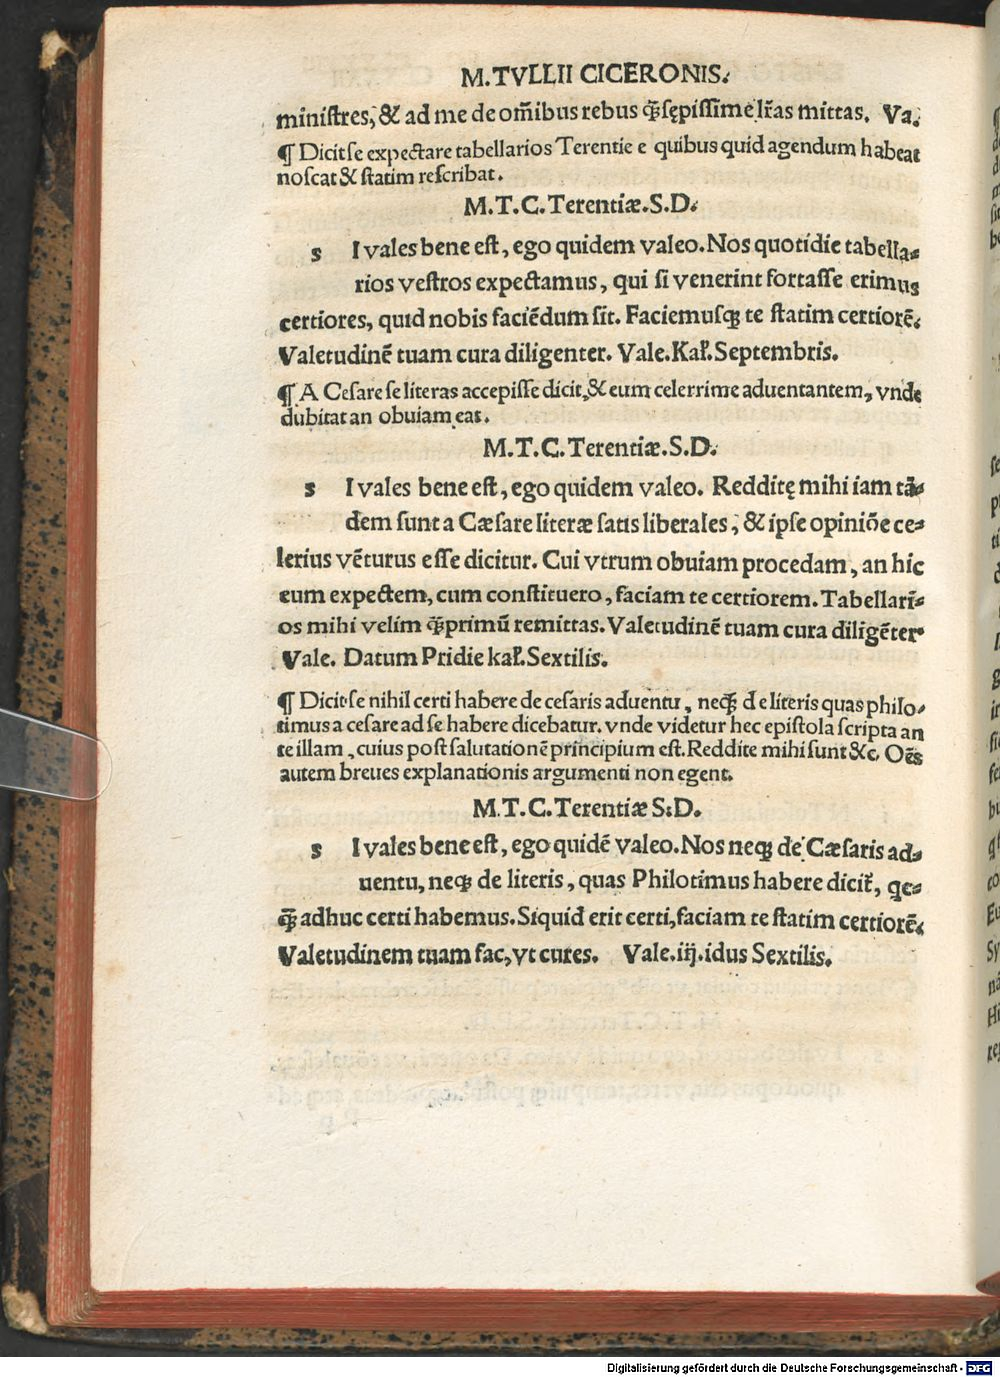 M.TVLLII CICERONIS.
miniſtres, & ad me de om̄ibus rebus ꝙ̄ſępiſſime lr̄as mittas. Va.
¶ Dicit ſe expectare tabellarios Terentie e quibus quid agendum habeat
noſcat & ſtatim reſcribat.
M.T.C.Terentiæ.S.D.
s I vales bene eſt, ego quidem valeo. Nos quotidie tabella-
rios veſtros expectamus, qui ſi venerint fortaſſe erimus
certiores, quid nobis faciẽdum ſit. Faciemuſq; te ſtatim certiorẽ.
Valetudinẽ tuam cura diligenter. Vale. Kal̄. Septembris.
¶ A Ceſare ſe literas accepiſſe dicit, & eum celerrime aduentantem, vnde
dubitat an obuiam eat.
M.T.C.Terentiæ.S.D.
s I vales bene eſt, ego quidem valeo. Redditę mihi iam tã-
dem ſunt a Cæſare literæ ſatis liberales, & ipſe opiniõe ce-
lerius vẽturus eſſe dicitur. Cui vtrum obuiam procedam, an hic
eum expectem, cum conſtituero, faciam te certiorem. Tabellari-
os mihi velim ꝙ̄primũ remittas. Valetudinẽ tuam cura diligẽter
Vale. Datum Pridie kal̄. Sextilis.
¶ Dicit ſe nihil certi habere de ceſaris aduentu, neq; de literis quas philo-
timus a ceſare ad ſe habere dicebatur. vnde videtur hec epiſtola ſcripta an
te illam, cuius poſt ſalutationẽ principium eſt. Reddite mihi ſunt &c. Oẽs
autem breues explanationis argumenti non egent.
M.T.C.Terentiæ S.D.
s I vales bene eſt, ego quidẽ valeo. Nos neq; de Cæſaris ad-
uentu, neq; de literis, quas Philotimus habere dicit̃, qc-
ꝙ̄ adhuc certi habemus. Siquid erit certi, faciam te ſtatim certiorẽ.
Valetudinem tuam fac, vt cures. Vale. iij. idus Sextilis.
Digitalisierung gefördert durch die Deutsche Forschungsgemeinschaft - DFG